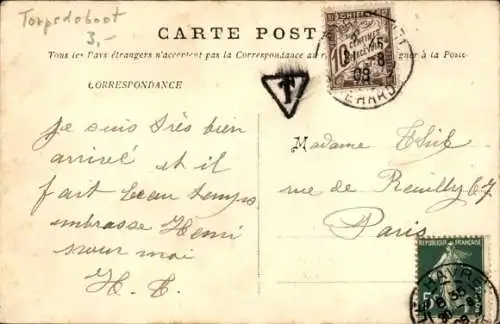 Torpedoboot
3,-
CARTE POSTALE
Tous les Pays étrangers n'acceptent pas la Correspondance au
à la Poste
CORRESPONDANCE
CHIFFRE
10 CENTIMES À PERCEVOIR
T
je suis très bien
arrivé et il
fait beau temps
embrasse Henri
pour moi
H. T.
Madame
rue de Reuilly 67
Paris
REPUBLIQUE FRANÇAISE
HAVRE
5